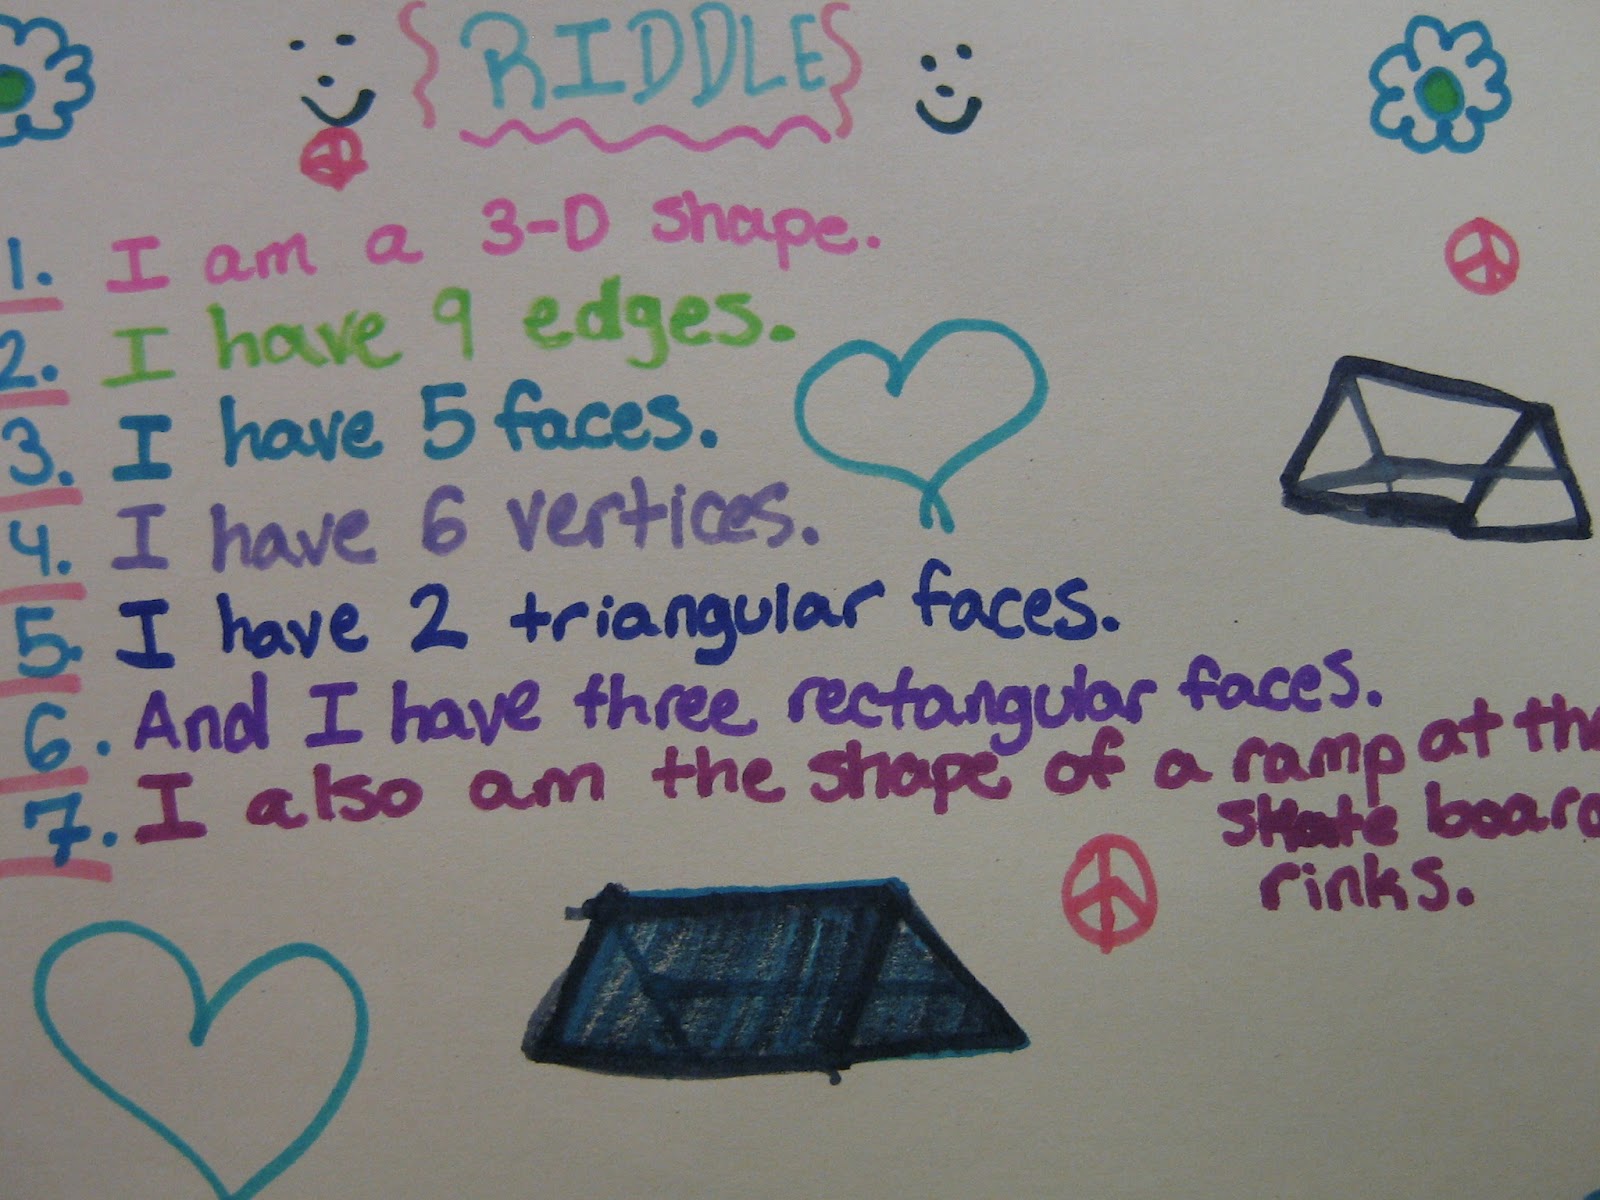 {RIDDLE}
1. I am a 3-D shape.
2. I have 9 edges.
3. I have 5 faces.
4. I have 6 vertices.
5. I have 2 triangular faces.
6. And I have three rectangular faces.
7. I also am the shape of a ramp at the
skate board
rinks.